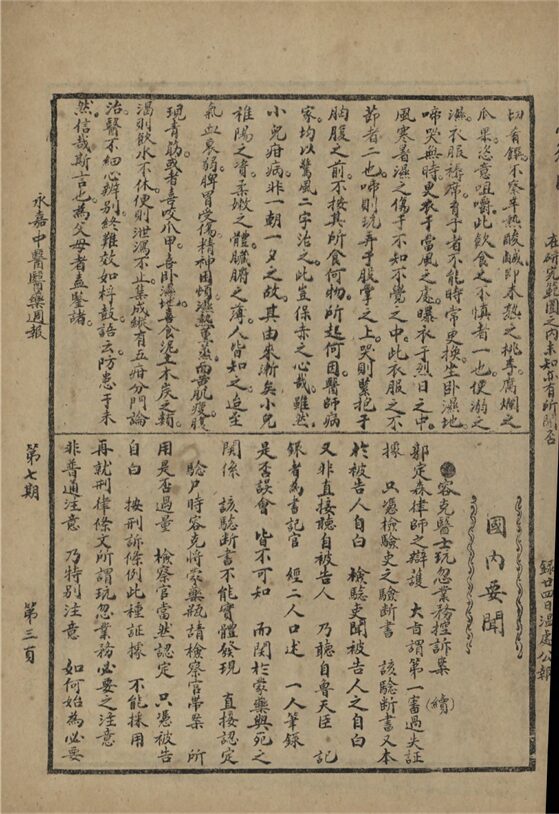 在研究範圍之内未知亦有所聞否
錄廿四日温處公報
切肴饌。不察辛熱酸鹹。即未熟之桃李。腐爛之
瓜菓。恣意咀嚼。此飲食之不慎者一也。便溺之
濕衣服褥席。有子者不能時常更換。坐卧濕地
啼哭無時。更衣于當風之處。曝衣于烈日之中。
風寒暑濕之傷于不知不覺之中。此衣服之不
節者二也。啼則玩弄于股掌之上。哭則緊抱于
胸腹之前。不按其所食何物。所起何因。醫師病
家。均以驚風二字治之。此豈保赤之心哉。雖然。
小兒疳病。非一朝一夕之故。其由來漸矣。小兒
稚陽之資。柔嫩之體。臟腑之薄。人皆知之。迨至
氣血衰弱。脾胃受傷。精神困憊。濕熱薰蒸。而面肌瘦
現青筋。或者喜咬爪甲。喜卧濕地。喜食泥土木炭之類
渴則飲水不休。便則泄瀉不止。有五疳分門論
治。醫不細心辨别。終難效如桴鼓。語云。防患于未
然。信哉斯言也。爲父母者盍鑒諸。
國内要聞
●容克醫士玩忽業務控訴案 (續)
鄭定森律師之辯護 大旨謂第一審過失証
據 只憑檢驗吏之驗斷書 該驗斷書又本
於被告人自白 檢驗吏聞被告人之自白
又非直接聽自被告人 乃聽自魯天臣 記
錄者為書記官 經二人口述 一人筆錄
是否誤會 皆不可知 而關於蒙藥與死之
關係 該驗斷書不能實體發現 直接認定
驗尸時容克將蒙藥瓶請檢察官帶案 所
用是否過量 檢察官當然認定 只憑被告
自白 按刑訴條例此種証據 不能採用
再就刑律條文所謂玩忽業務必要之注意
非普通注意 乃特别注意 如何始為必要
永嘉中醫醫藥週報
第七期
第三頁